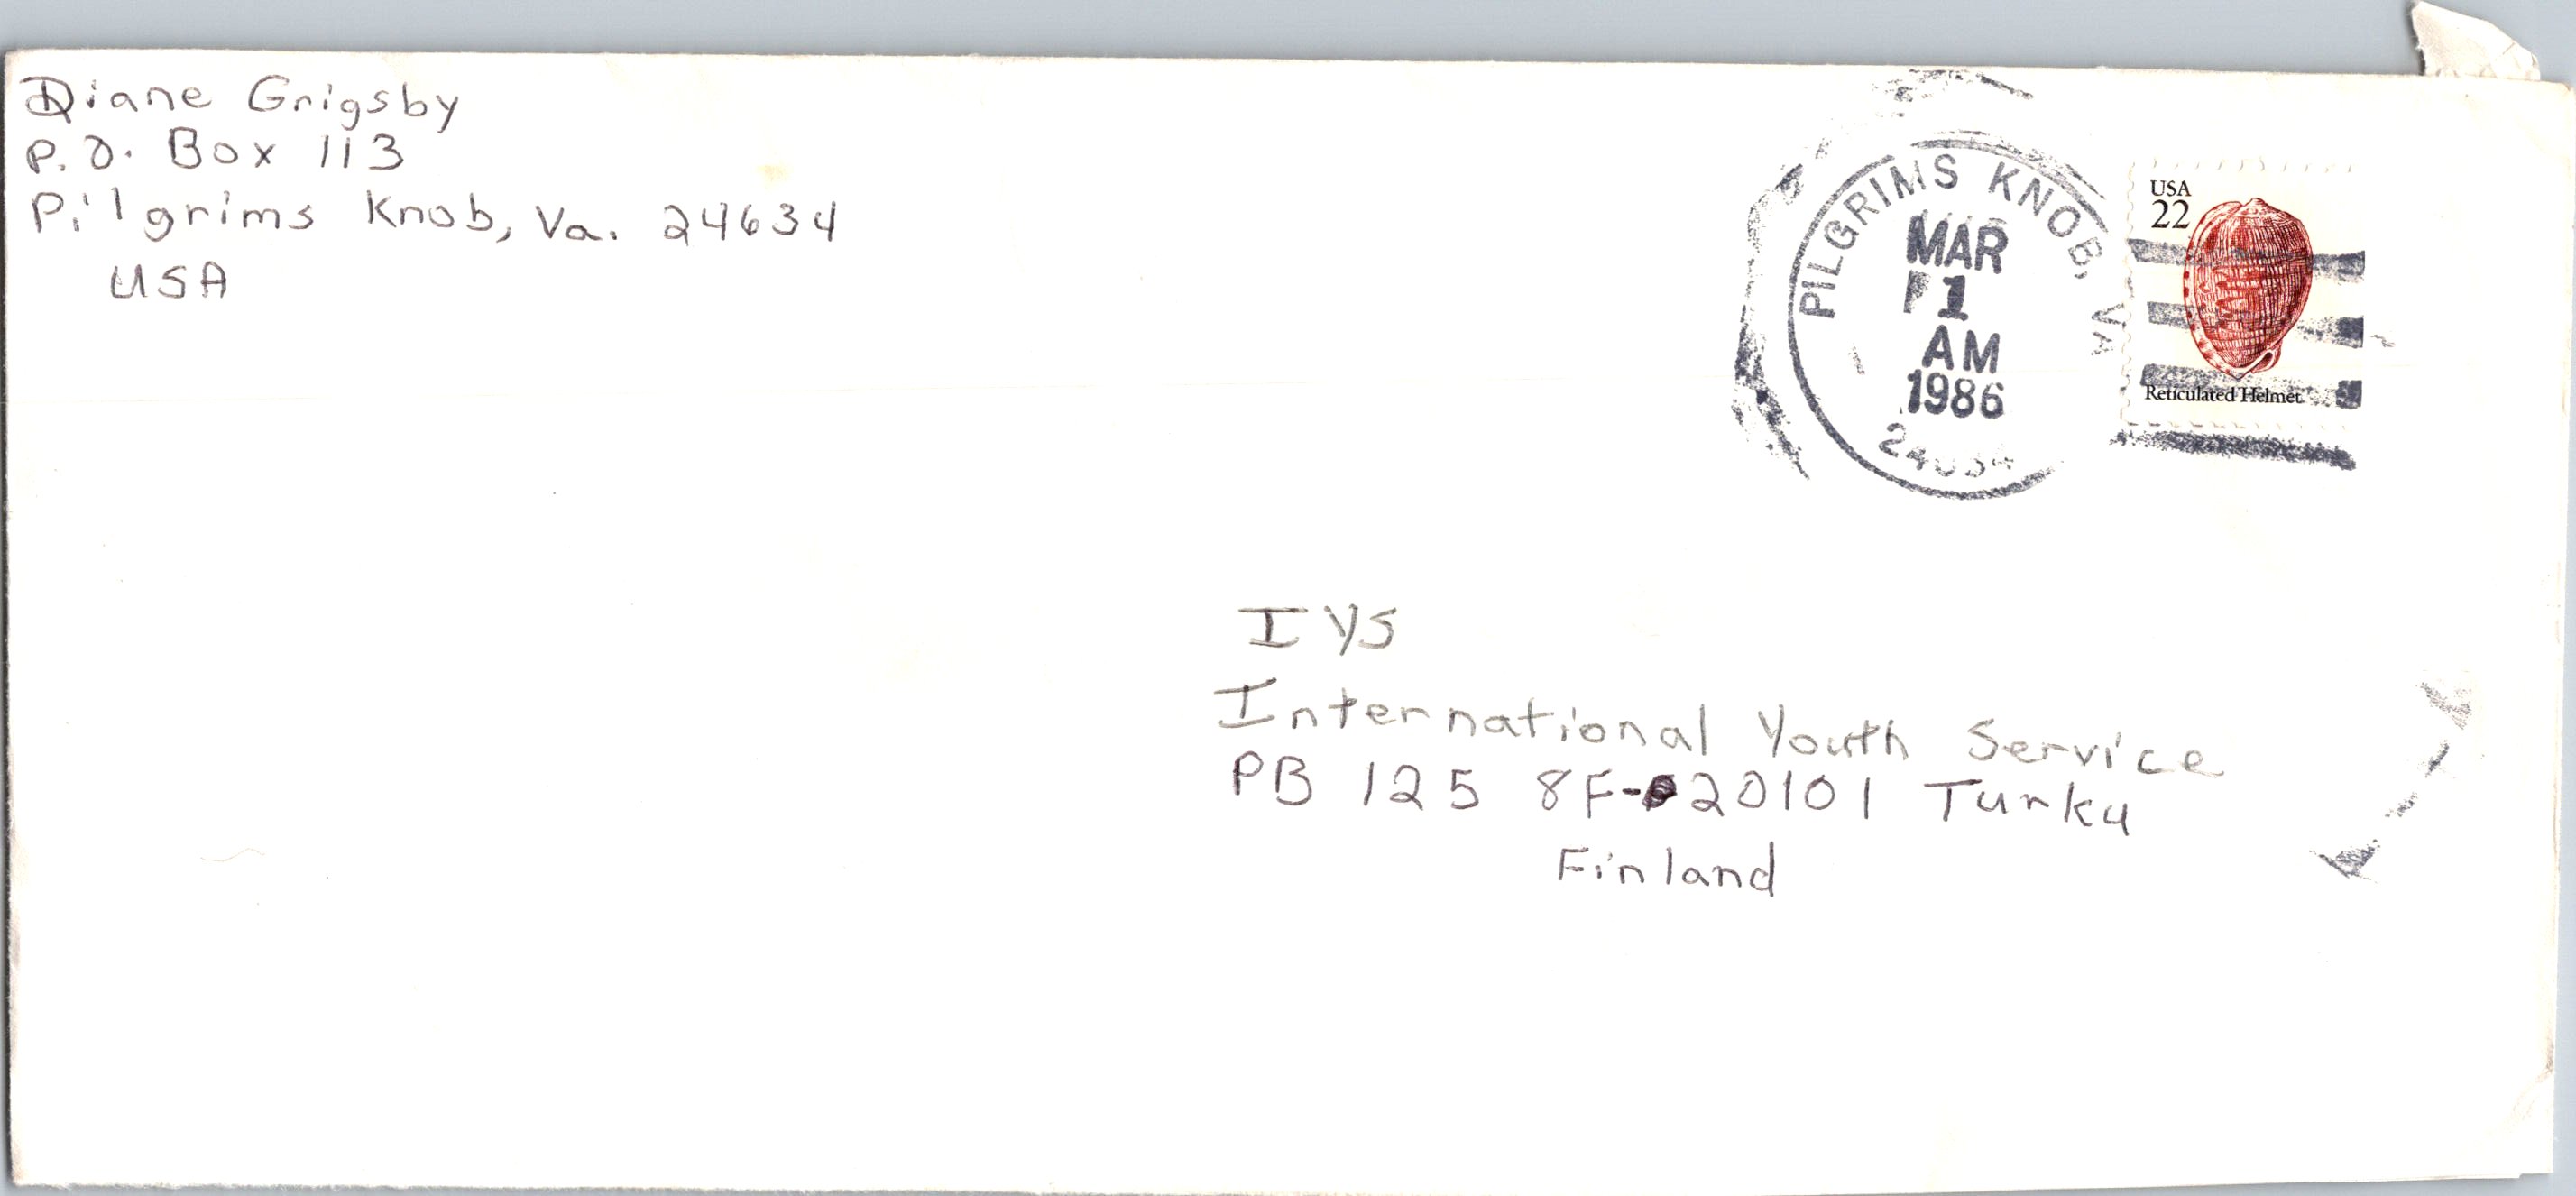 Diane Grigsby
P.O. Box 113
Pilgrims Knob, Va. 24634
USA
PILGRIMS KNOB, VA
MAR
1
AM
1986
USA
22
Reticulated Helmet
IYS
International Youth Service
PB 125 8F-20101 Turku
Finland